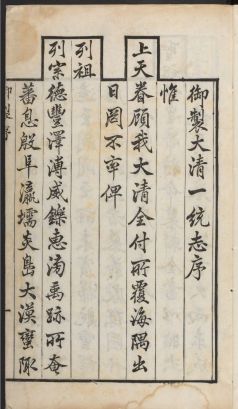 御製大清一統志序
惟
上天眷顧我大清全付所覆海隅出
日罔不率俾
列祖
列宗德豐澤溥威鑠惠滂禹跡所奄
蕃息殷阜瀛壖炎島大漠蠻陬